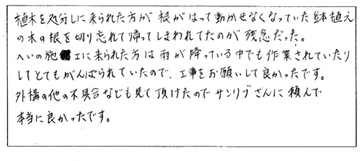 植木を処分しに来られた方が根がはって動かせなくなっていた鉢植え
の木の根を切り忘れて帰ってしまわれてたのが残念だった。
へいの施工に来られた方は雨が降っている中でも作業されていたり
してとてもがんばられていたので、工事をお願いして良かったです。
外構の他の不具合なども見て頂けたのでサンリブさんに頼んで
本当に良かったです。